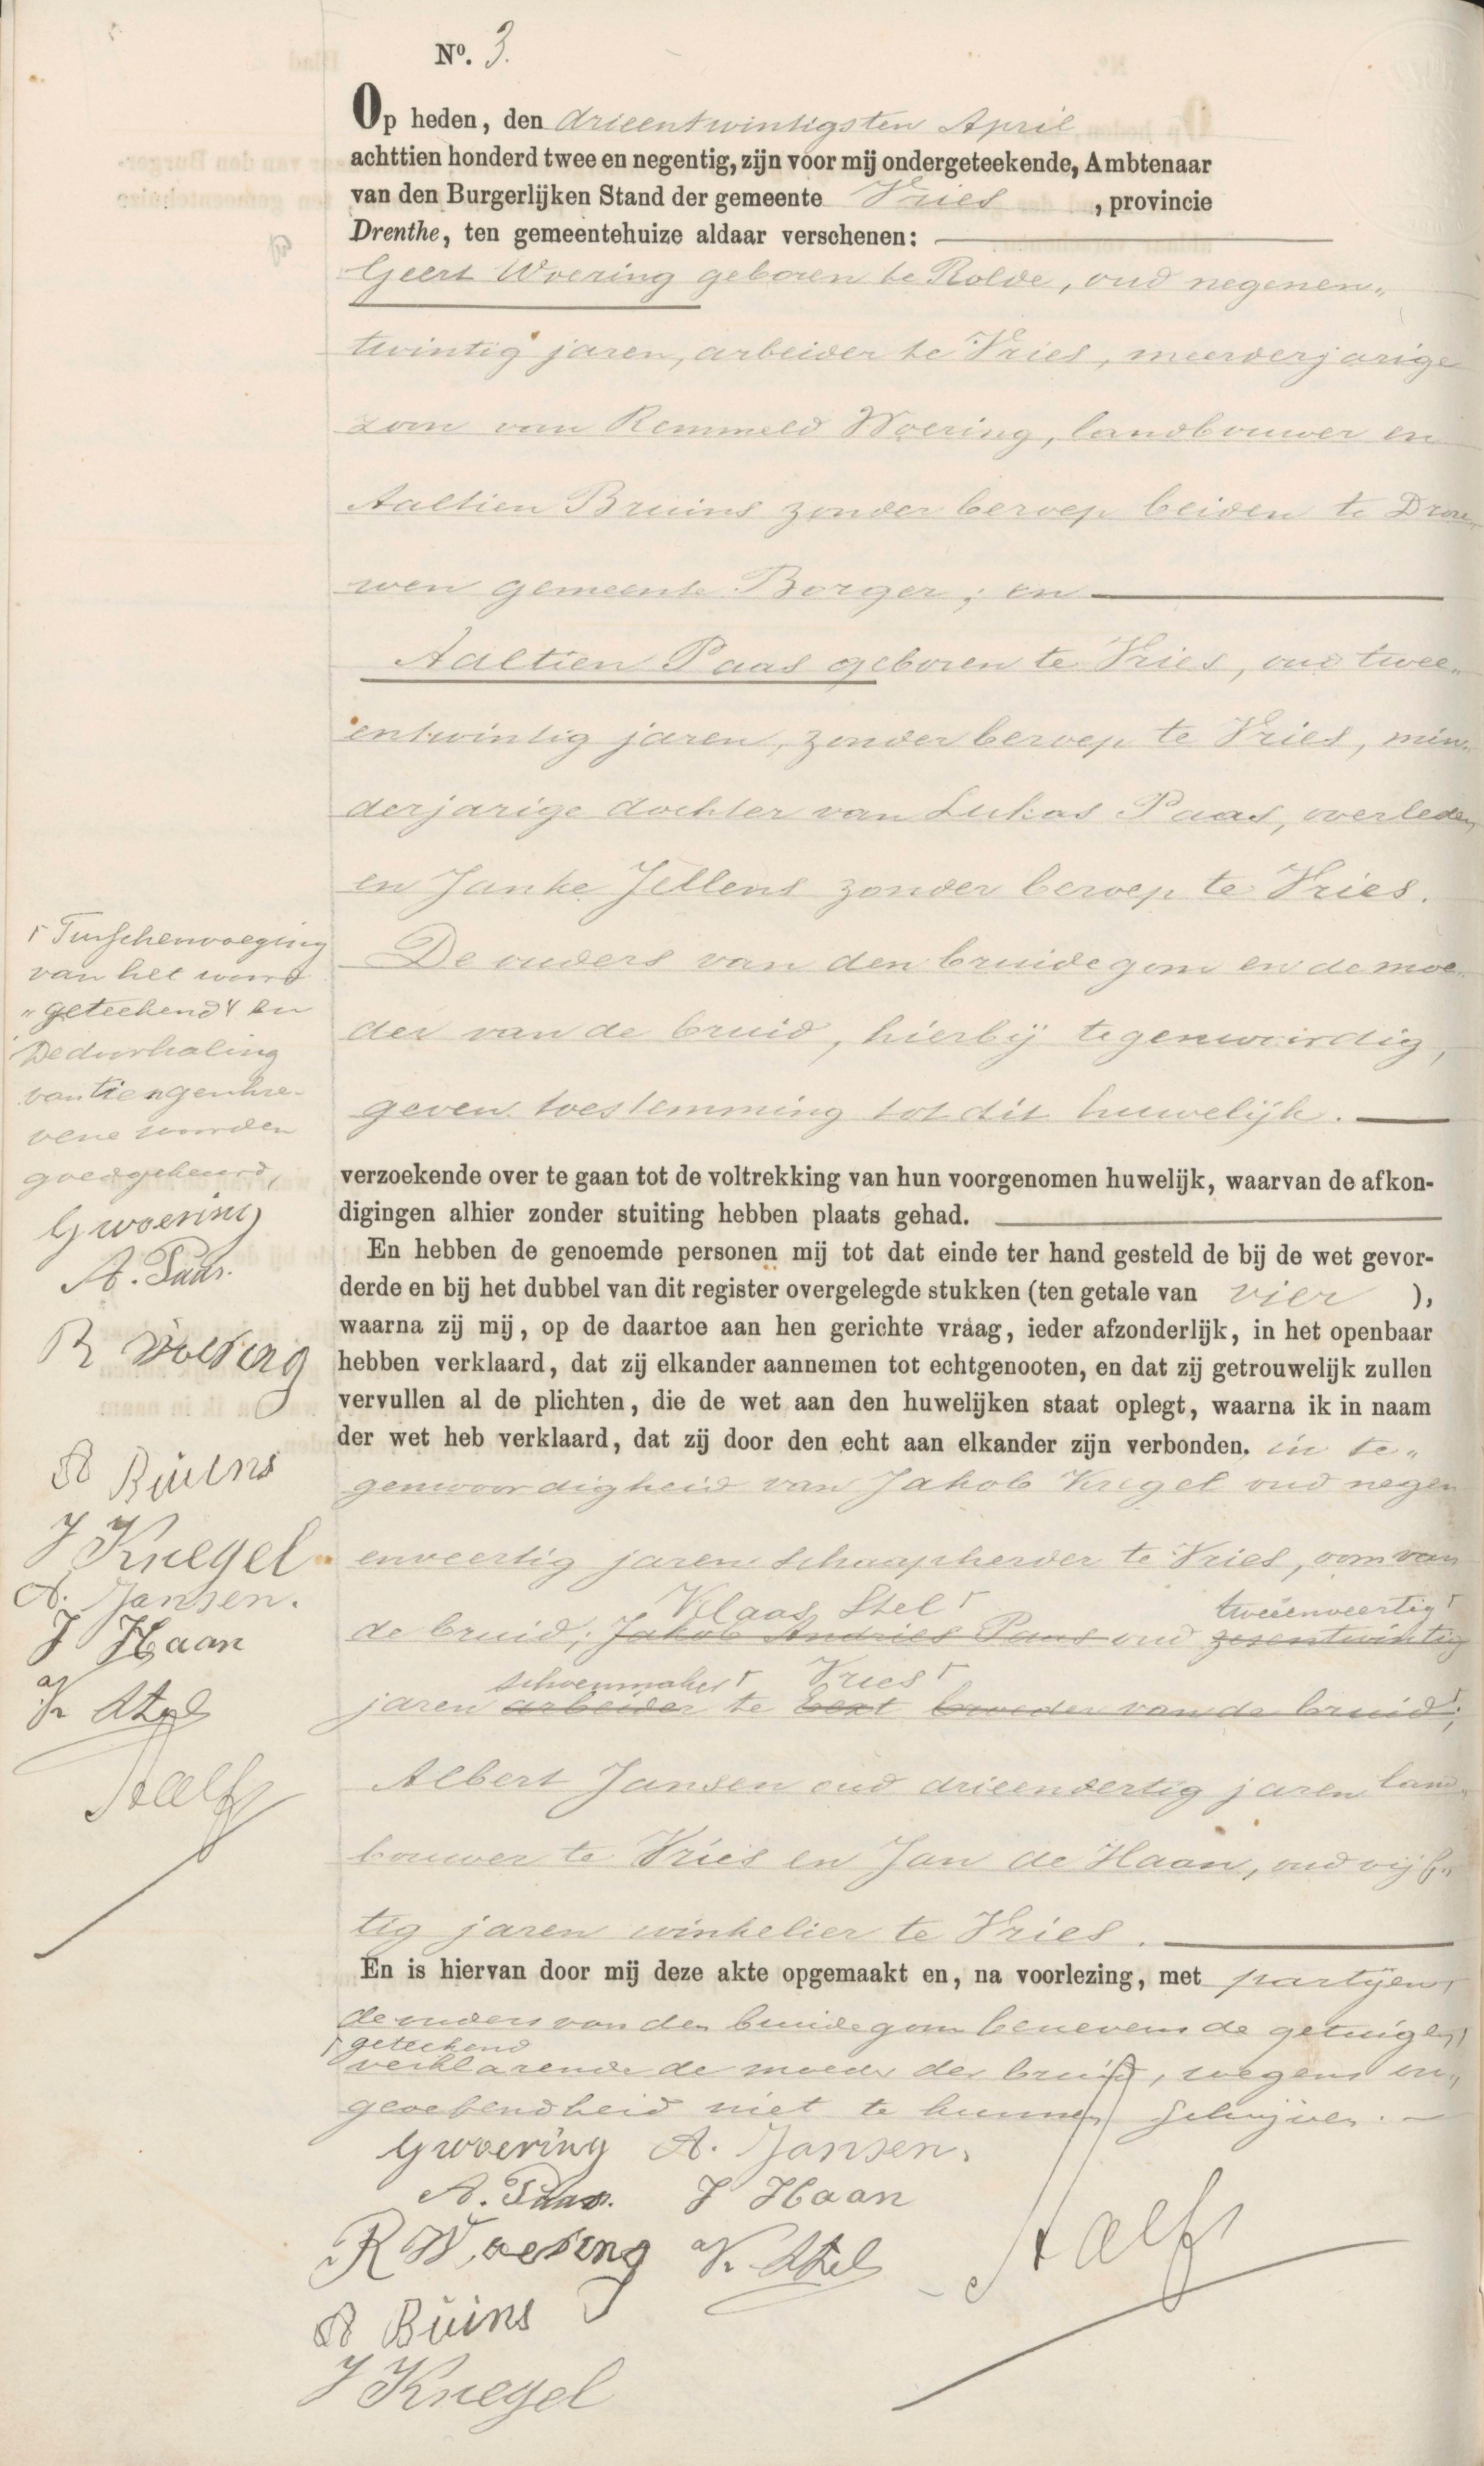 Nº. 3.
Op heden, den drieentwintigsten April
achttien honderd twee en negentig, zijn voor mij ondergeteekende, Ambtenaar
van den Burgerlijken Stand der gemeente Vries , provincie
Drenthe, ten gemeentehuize aldaar verschenen:
Geert Woering geboren te Rolde, oud negenen„
twintig jaren, arbeider te Vries, meerderjarige
zoon van Remmeld Woering, landbouwer en
Aaltien Bruins zonder beroep beiden te Drou
wen gemeente Borger; en
Aaltien Paas geboren te Vries, oud twee„
entwintig jaren, zonder beroep te Vries, min„
derjarige dochter van Lukas Paas, overleden
en Janke Jellens zonder beroep te Vries.
De ouders van den bruidegom en de moe„
der van de bruid, hierbij tegenwoordig,
geven toestemming tot dit huwelijk.
verzoekende over te gaan tot de voltrekking van hun voorgenomen huwelijk, waarvan de afkon-
digingen alhier zonder stuiting hebben plaats gehad.
En hebben de genoemde personen mij tot dat einde ter hand gesteld de bij de wet gevor-
derde en bij het dubbel van dit register overgelegde stukken (ten getale van vier ),
waarna zij mij, op de daartoe aan hen gerichte vraag, ieder afzonderlijk, in het openbaar
hebben verklaard, dat zij elkander aannemen tot echtgenooten, en dat zij getrouwelijk zullen
vervullen al de plichten, die de wet aan den huwelijken staat oplegt, waarna ik in naam
der wet heb verklaard, dat zij door den echt aan elkander zijn verbonden. in te„
genwoordigheid van Jakob Kregel oud negen
enveertig jaren schaapherder te Vries, oom van
Klaas Stel tweeenveertig
de bruid; Jakob Andries Paas oud zesentwintig
schoenmaker Vries
jaren arbeider te Gext broeder van de bruid;
Albert Jansen oud drieendertig jaren land„
bouwer te Vries en Jan de Haan, oud vijf„
tig jaren winkelier te Vries.
En is hiervan door mij deze akte opgemaakt en, na voorlezing, met partijen,
de ouders van den bruidegom benevens de getuigen
geteekend
verklarende de moeder der bruid, wegens on„
geoefendheid niet te kunnen schrijven.
GWoering A. Jansen.
A. Paas. J Haan
R Woering K. Stel
A Büins
J Kregel
Tusschenvoeging
van het woord
"geteekend" en
Dedoorhaling
van tien geschre-
vene woorden
goedgekeurd,
G woering
A. Paas.
R Woering
A Büins
J Kregel
A. Jansen.
J Haan
K Stel